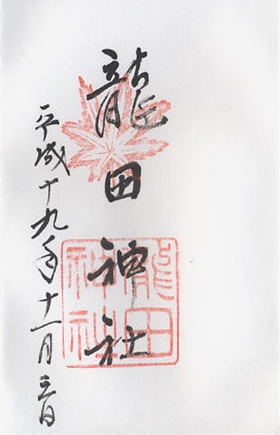 龍田神社
平成十九年十一月三日
龍田
神社